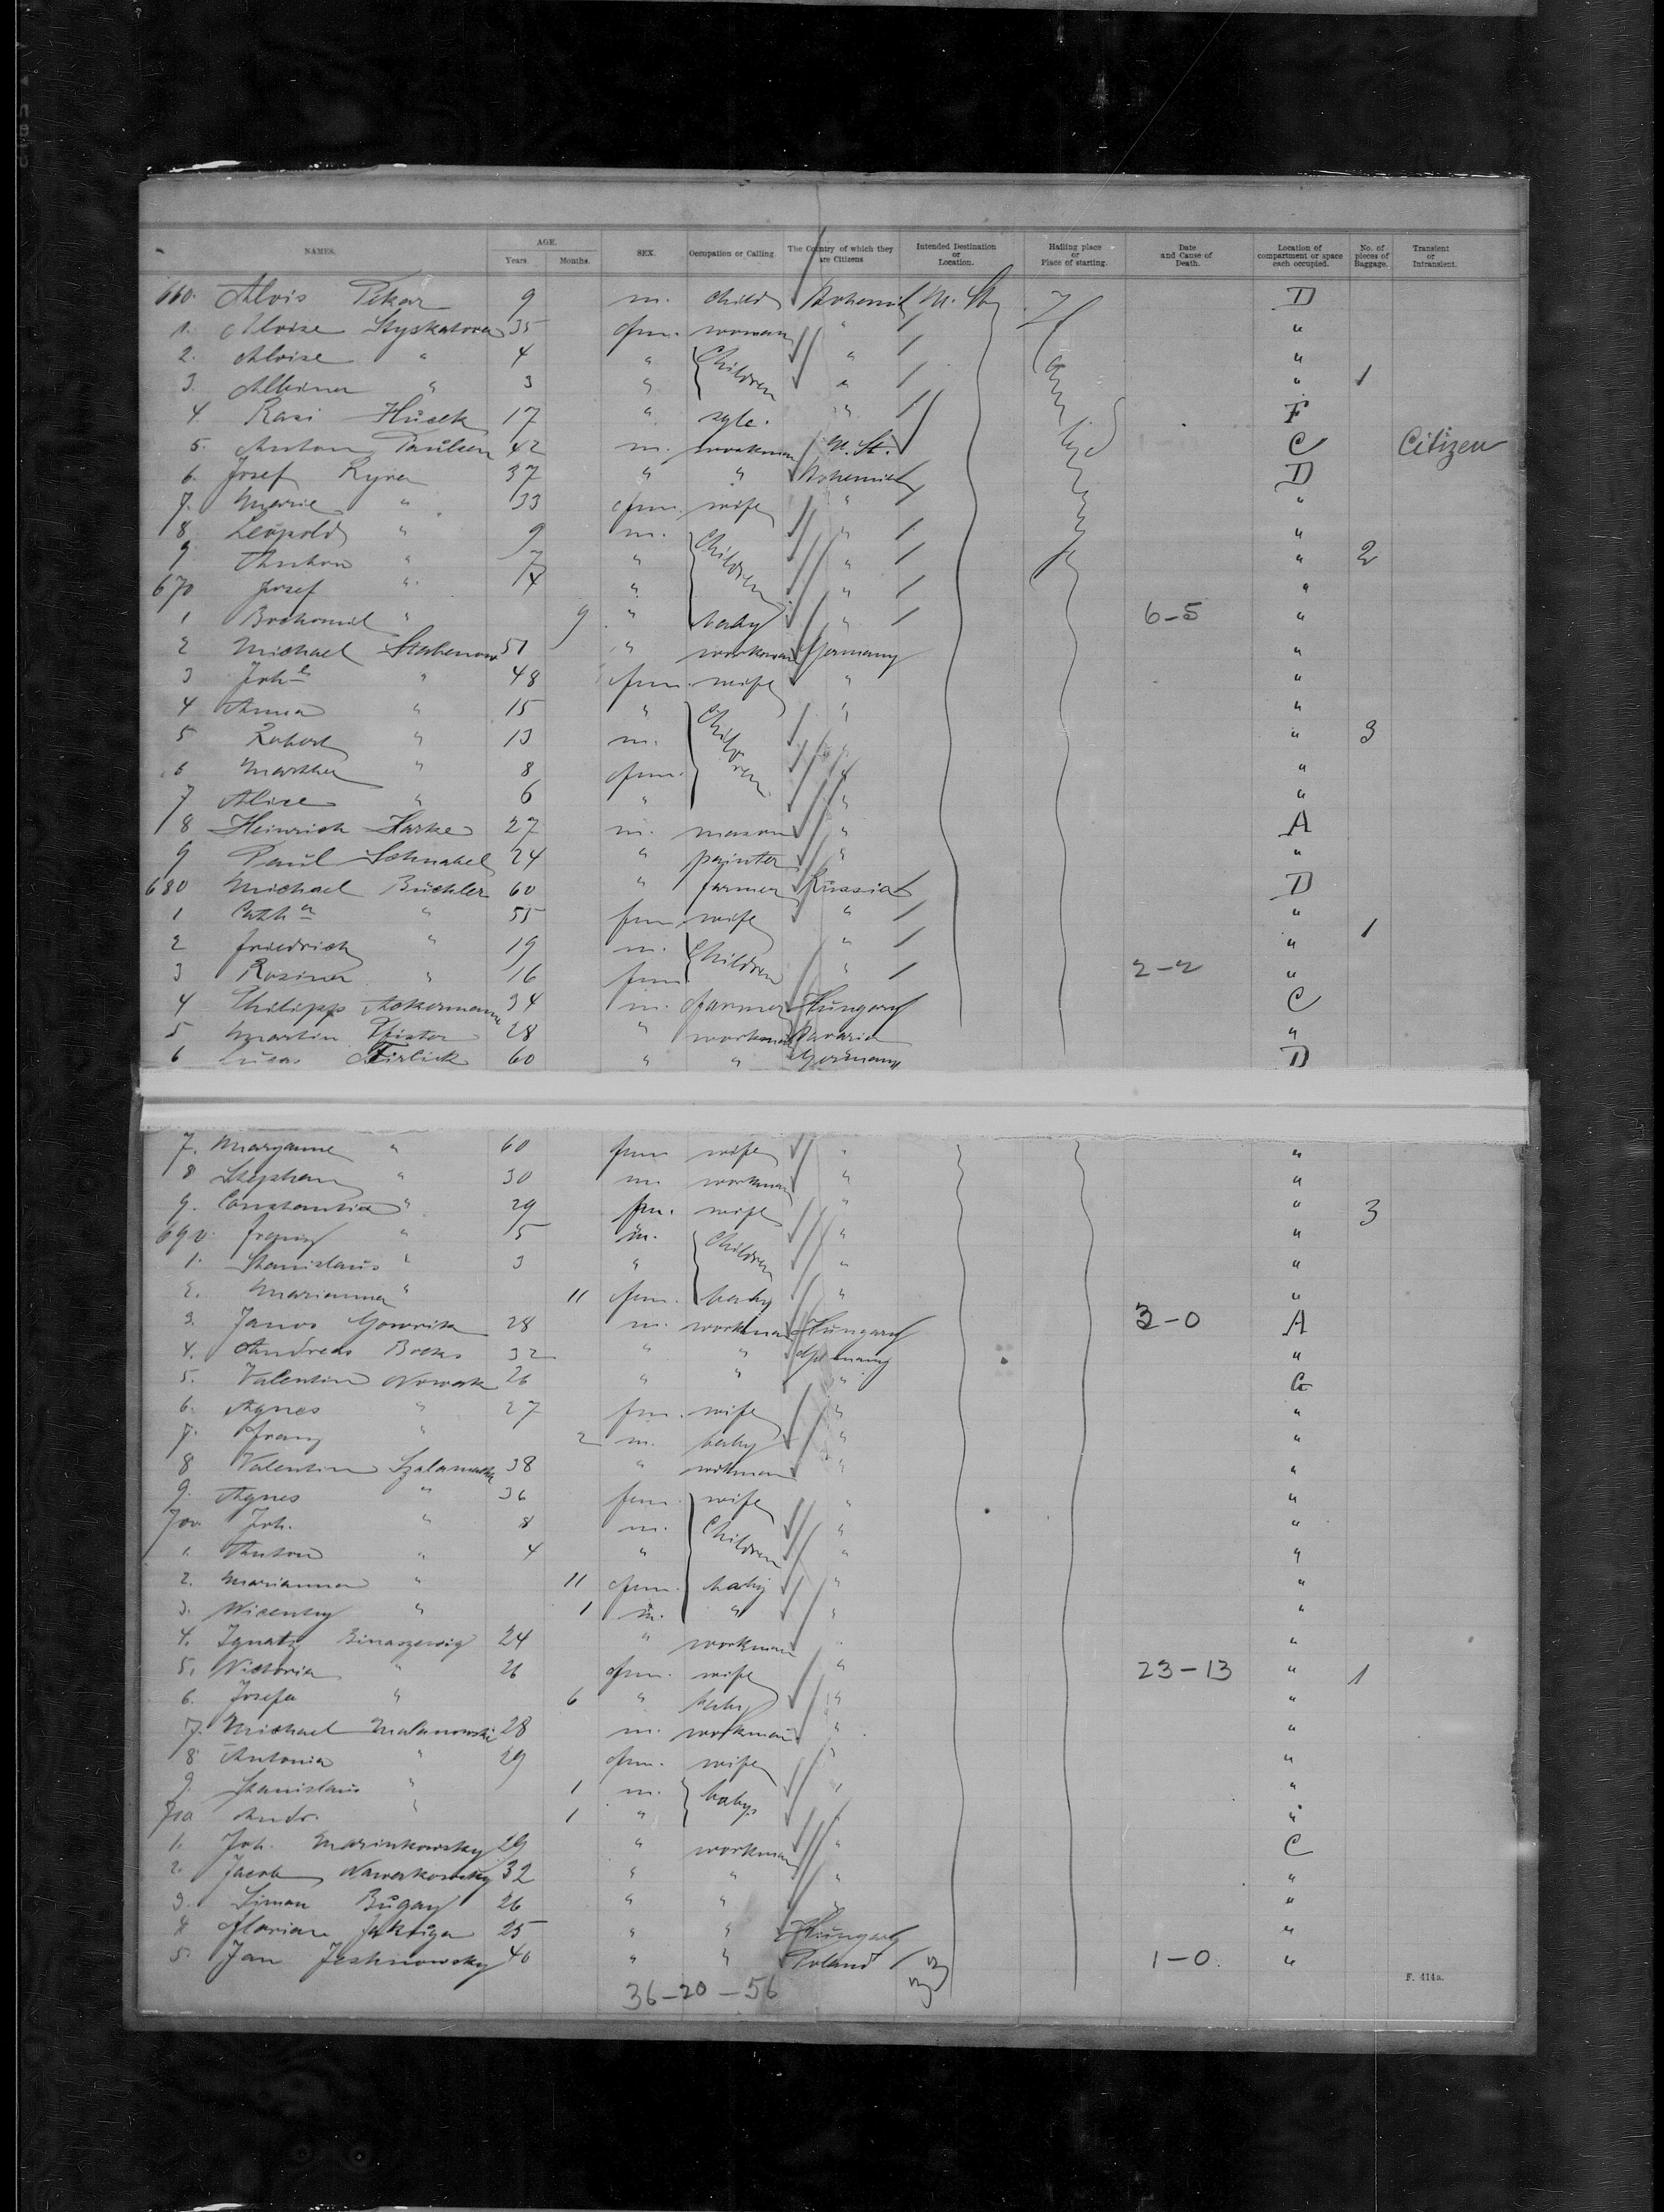 NAMES. AGE. Years. Months. SEX. Occupation or Calling. The Country of which they are Citizens Intended Destination or Location. Hailing place or Place of starting. Date and Cause of Death. Location of compartment or space each occupied. No. of pieces of Baggage. Transient or Intransient.
660. Alois Pekar 9 m. child Bohemia D
1. Aloise Styskalova 35 fm. woman " "
2. Aloise " 4 " Children " "
3. Albina " 3 " " " 1
4. Rasi Husek 17 " " F
5. Anton Paulsen 42 m. workman U. St. C Citizen
6. Josef Ryva 37 " " Bohemia D
7. Marie " 33 fm. wife " "
8 Leopold " 9 m. Children " "
9 Anton " 7 " " " 2
670 Josef " 4 " " "
1 " 9 " baby " 6-5 "
2 Michael Stabenow 51 " workman Germany "
3 Joh " 48 fm. wife " "
4 Anna " 15 " Children " "
5 Robert " 13 m. " " 3
6 Martha " 8 fm. " "
7 Alice " 6 " " "
8 Heinrich Harke 27 m. mason " A
9 Paul Schnabel 24 " painter " "
680 Michael Büchler 60 " farmer Russia D
1 Cath " 55 fm. wife " " 1
2 Friedrich " 19 m. Children " "
3 Rosina " 16 fm " 2-2 "
4 Philipp Ackermann 34 m. farmer Hungary C
5 Martin Pfister 28 " workman Bavaria "
6 Lucas 60 " " Germany D
7. Maryanne " 60 fm wife " "
8 Stephan " 30 m. workman " "
9. Constantia " 29 fm. wife " " 3
690 Franz " 5 m. Children " "
1. Stanislaus " 3 " " "
2. Marianna " 11 fm. baby " "
3. Janos 28 m. workman Hungary 3-0 A
4. Andreas 32 " " Germany "
5. Valentin Nowak 26 " " " G
6. Agnes " 27 fm. wife " "
7. Franz " 2 m. baby " "
8 Valentin 38 " workman " "
9. Agnes " 36 fm. wife " "
700 Joh. " 8 m. Children " "
1. Anton " 4 " " "
2. Marianna " 11 fm. baby " "
3. " 1 m. " " "
4. Ignatz 24 " workman " "
5. Victoria " 26 fm. wife " 23-13 " 1
6. Josefa " 6 " baby " "
7. Michael Malanowski 28 m. workman " "
8 Antonia " 29 fm. wife " "
9. Stanislaus " 1 m. babys " "
710 Andr. " 1 " " "
1. Joh. Marinkowsky 29 " workman " C
2. Jacob Nawerkowsky 32 " " " "
3. Simon Bugay 26 " " " "
4 Florian 25 " " Hungary "
5. Jan 40 " " Poland 1-0. "
36-20-56
F. 414a.